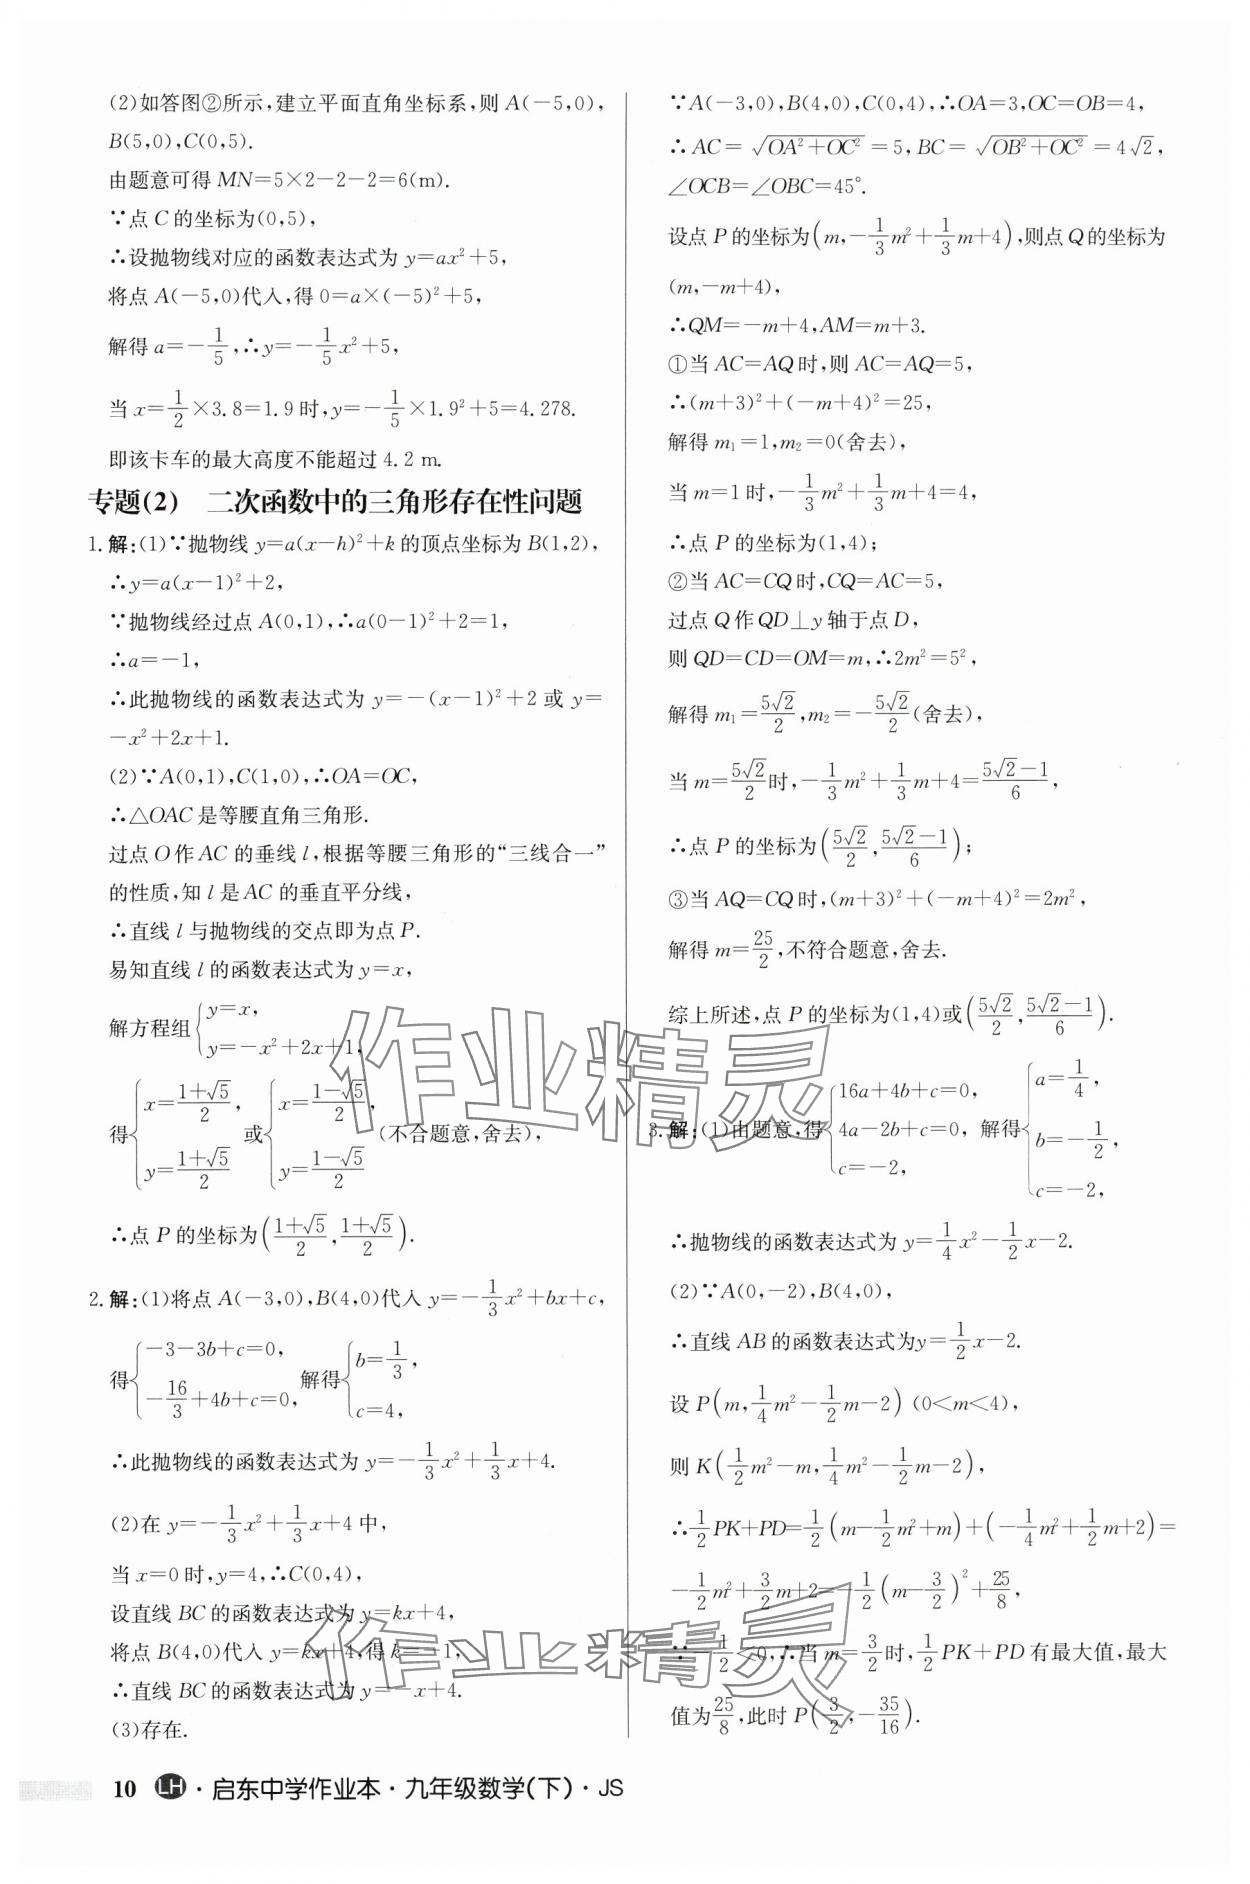 (2)如答图②所示,建立平面直角坐标系,则 A(-5,0),
B(5,0),C(0,5).
由题意可得 MN=5×2-2-2=6(m).
∵点 C 的坐标为(0,5),
∴设抛物线对应的函数表达式为 y=ax²+5,
将点 A(-5,0)代入,得 0=a×(-5)²+5,
解得 a=-1/5,∴y=-1/5x²+5,
当 x=1/2×3.8=1.9 时,y=-1/5×1.9²+5=4.278.
即该卡车的最大高度不能超过 4.2 m.
专题(2) 二次函数中的三角形存在性问题
1. 解:(1)∵抛物线 y=a(x-h)²+k 的顶点坐标为 B(1,2),
∴y=a(x-1)²+2,
∵抛物线经过点 A(0,1),∴a(0-1)²+2=1,
∴a=-1,
∴此抛物线的函数表达式为 y=-(x-1)²+2 或 y=
-x²+2x+1.
(2)∵A(0,1),C(1,0),∴OA=OC,
∴△OAC 是等腰直角三角形.
过点 O 作 AC 的垂线 l,根据等腰三角形的“三线合一”
的性质,知 l 是 AC 的垂直平分线,
∴直线 l 与抛物线的交点即为点 P.
易知直线 l 的函数表达式为 y=x,
解方程组{y=x, y=-x²+2x+1,
得{x=(1+√5)/2, y=(1+√5)/2 或{x=(1-√5)/2, y=(1-√5)/2 (不合题意,舍去),
∴点 P 的坐标为((1+√5)/2,(1+√5)/2).
2. 解:(1)将点 A(-3,0),B(4,0)代入 y=-1/3x²+bx+c,
得{-3-3b+c=0, -16/3+4b+c=0, 解得{b=1/3, c=4,
∴此抛物线的函数表达式为 y=-1/3x²+1/3x+4.
(2)在 y=-1/3x²+1/3x+4 中,
当 x=0 时,y=4,∴C(0,4),
设直线 BC 的函数表达式为 y=kx+4,
将点 B(4,0)代入 y=kx+4,得 k=-1,
∴直线 BC 的函数表达式为 y=-x+4.
(3)存在.
∵A(-3,0),B(4,0),C(0,4),∴OA=3,OC=OB=4,
∴AC=√(OA²+OC²)=5,BC=√(OB²+OC²)=4√2,
∠OCB=∠OBC=45°.
设点 P 的坐标为(m,-1/3m²+1/3m+4),则点 Q 的坐标为
(m,-m+4),
∴QM=-m+4,AM=m+3.
①当 AC=AQ 时,则 AC=AQ=5,
∴(m+3)²+(-m+4)²=25,
解得 m₁=1,m₂=0(舍去),
当 m=1 时,-1/3m²+1/3m+4=4,
∴点 P 的坐标为(1,4);
②当 AC=CQ 时,CQ=AC=5,
过点 Q 作 QD⊥y 轴于点 D,
则 QD=CD=OM=m,∴2m²=5²,
解得 m₁=5√2/2,m₂=-5√2/2(舍去),
当 m=5√2/2时,-1/3m²+1/3m+4=(5√2-1)/6,
∴点 P 的坐标为(5√2/2,(5√2-1)/6);
③当 AQ=CQ 时,(m+3)²+(-m+4)²=2m²,
解得 m=25/2,不符合题意,舍去.
综上所述,点 P 的坐标为(1,4)或(5√2/2,(5√2-1)/6).
3. 解:(1)由题意,得{16a+4b+c=0, 4a-2b+c=0, c=-2, 解得{a=1/4, b=-1/2, c=-2,
∴抛物线的函数表达式为 y=1/4x²-1/2x-2.
(2)∵A(0,-2),B(4,0),
∴直线 AB 的函数表达式为y=1/2x-2.
设 P(m,1/4m²-1/2m-2)(0<m<4),
则 K(1/2m²-m,1/4m²-1/2m-2),
∴1/2PK+PD=1/2(m-1/2m²+m)+(-1/4m²+1/2m+2)=
-1/2m²+3/2m+2=-1/2(m-3/2)²+25/8,
∵-1/2<0,∴当 m=3/2时,1/2PK+PD 有最大值,最大
值为25/8,此时 P(3/2,-35/16).
作业精灵
作业精灵
10 LH·启东中学作业本·九年级数学(下)·JS